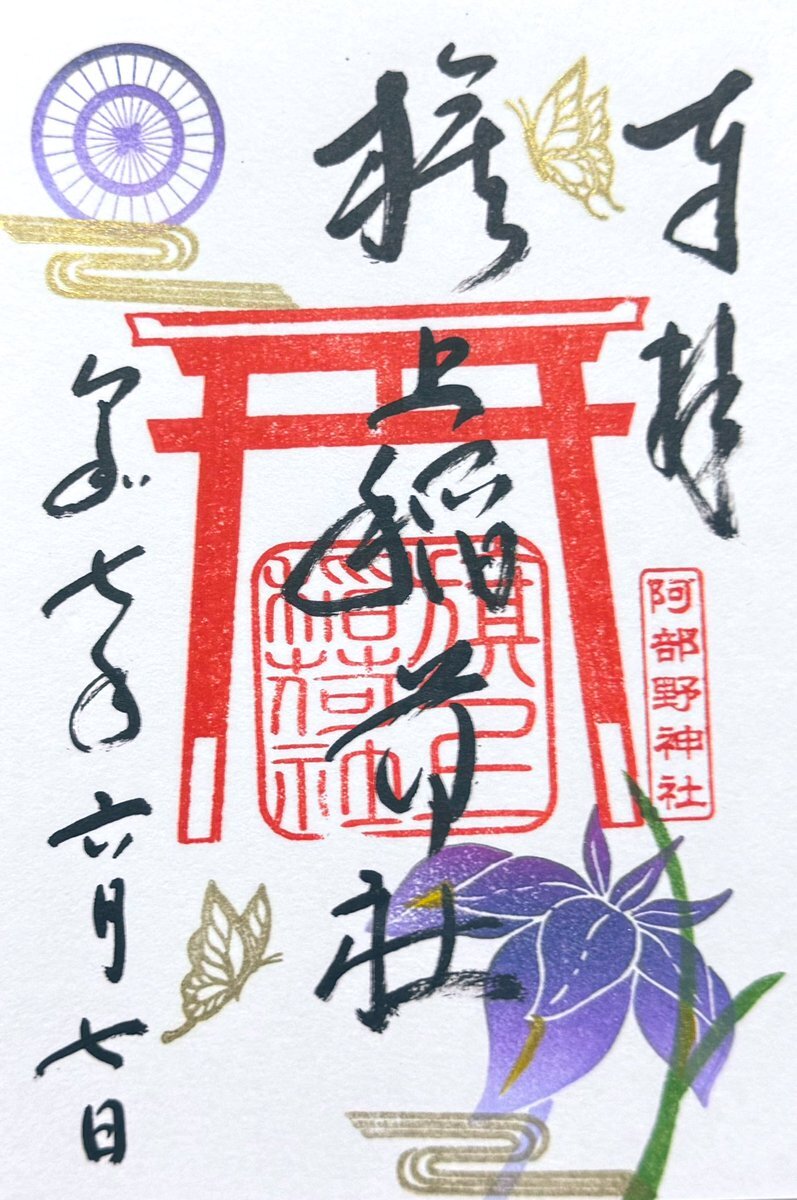 奉拝
旗上稲荷社
旗上稲荷社
阿部野神社
令和七年六月七日